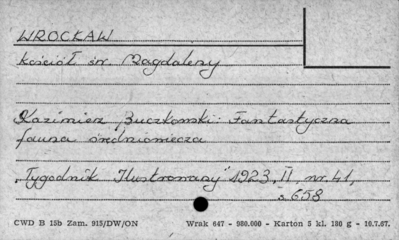 WROCŁAW
Kościół św. Magdaleny
Kazimierz Buczkowski: Fantastyczna
fauna średniowiecza
„Tygodnik Ilustrowany" 1923, II, nr. 41,
s. 658
CWD B 15b Zam. 915/DW/ON Wrak 647 - 980.000 - Karton 5 kl. 180 g - 10.7.67.